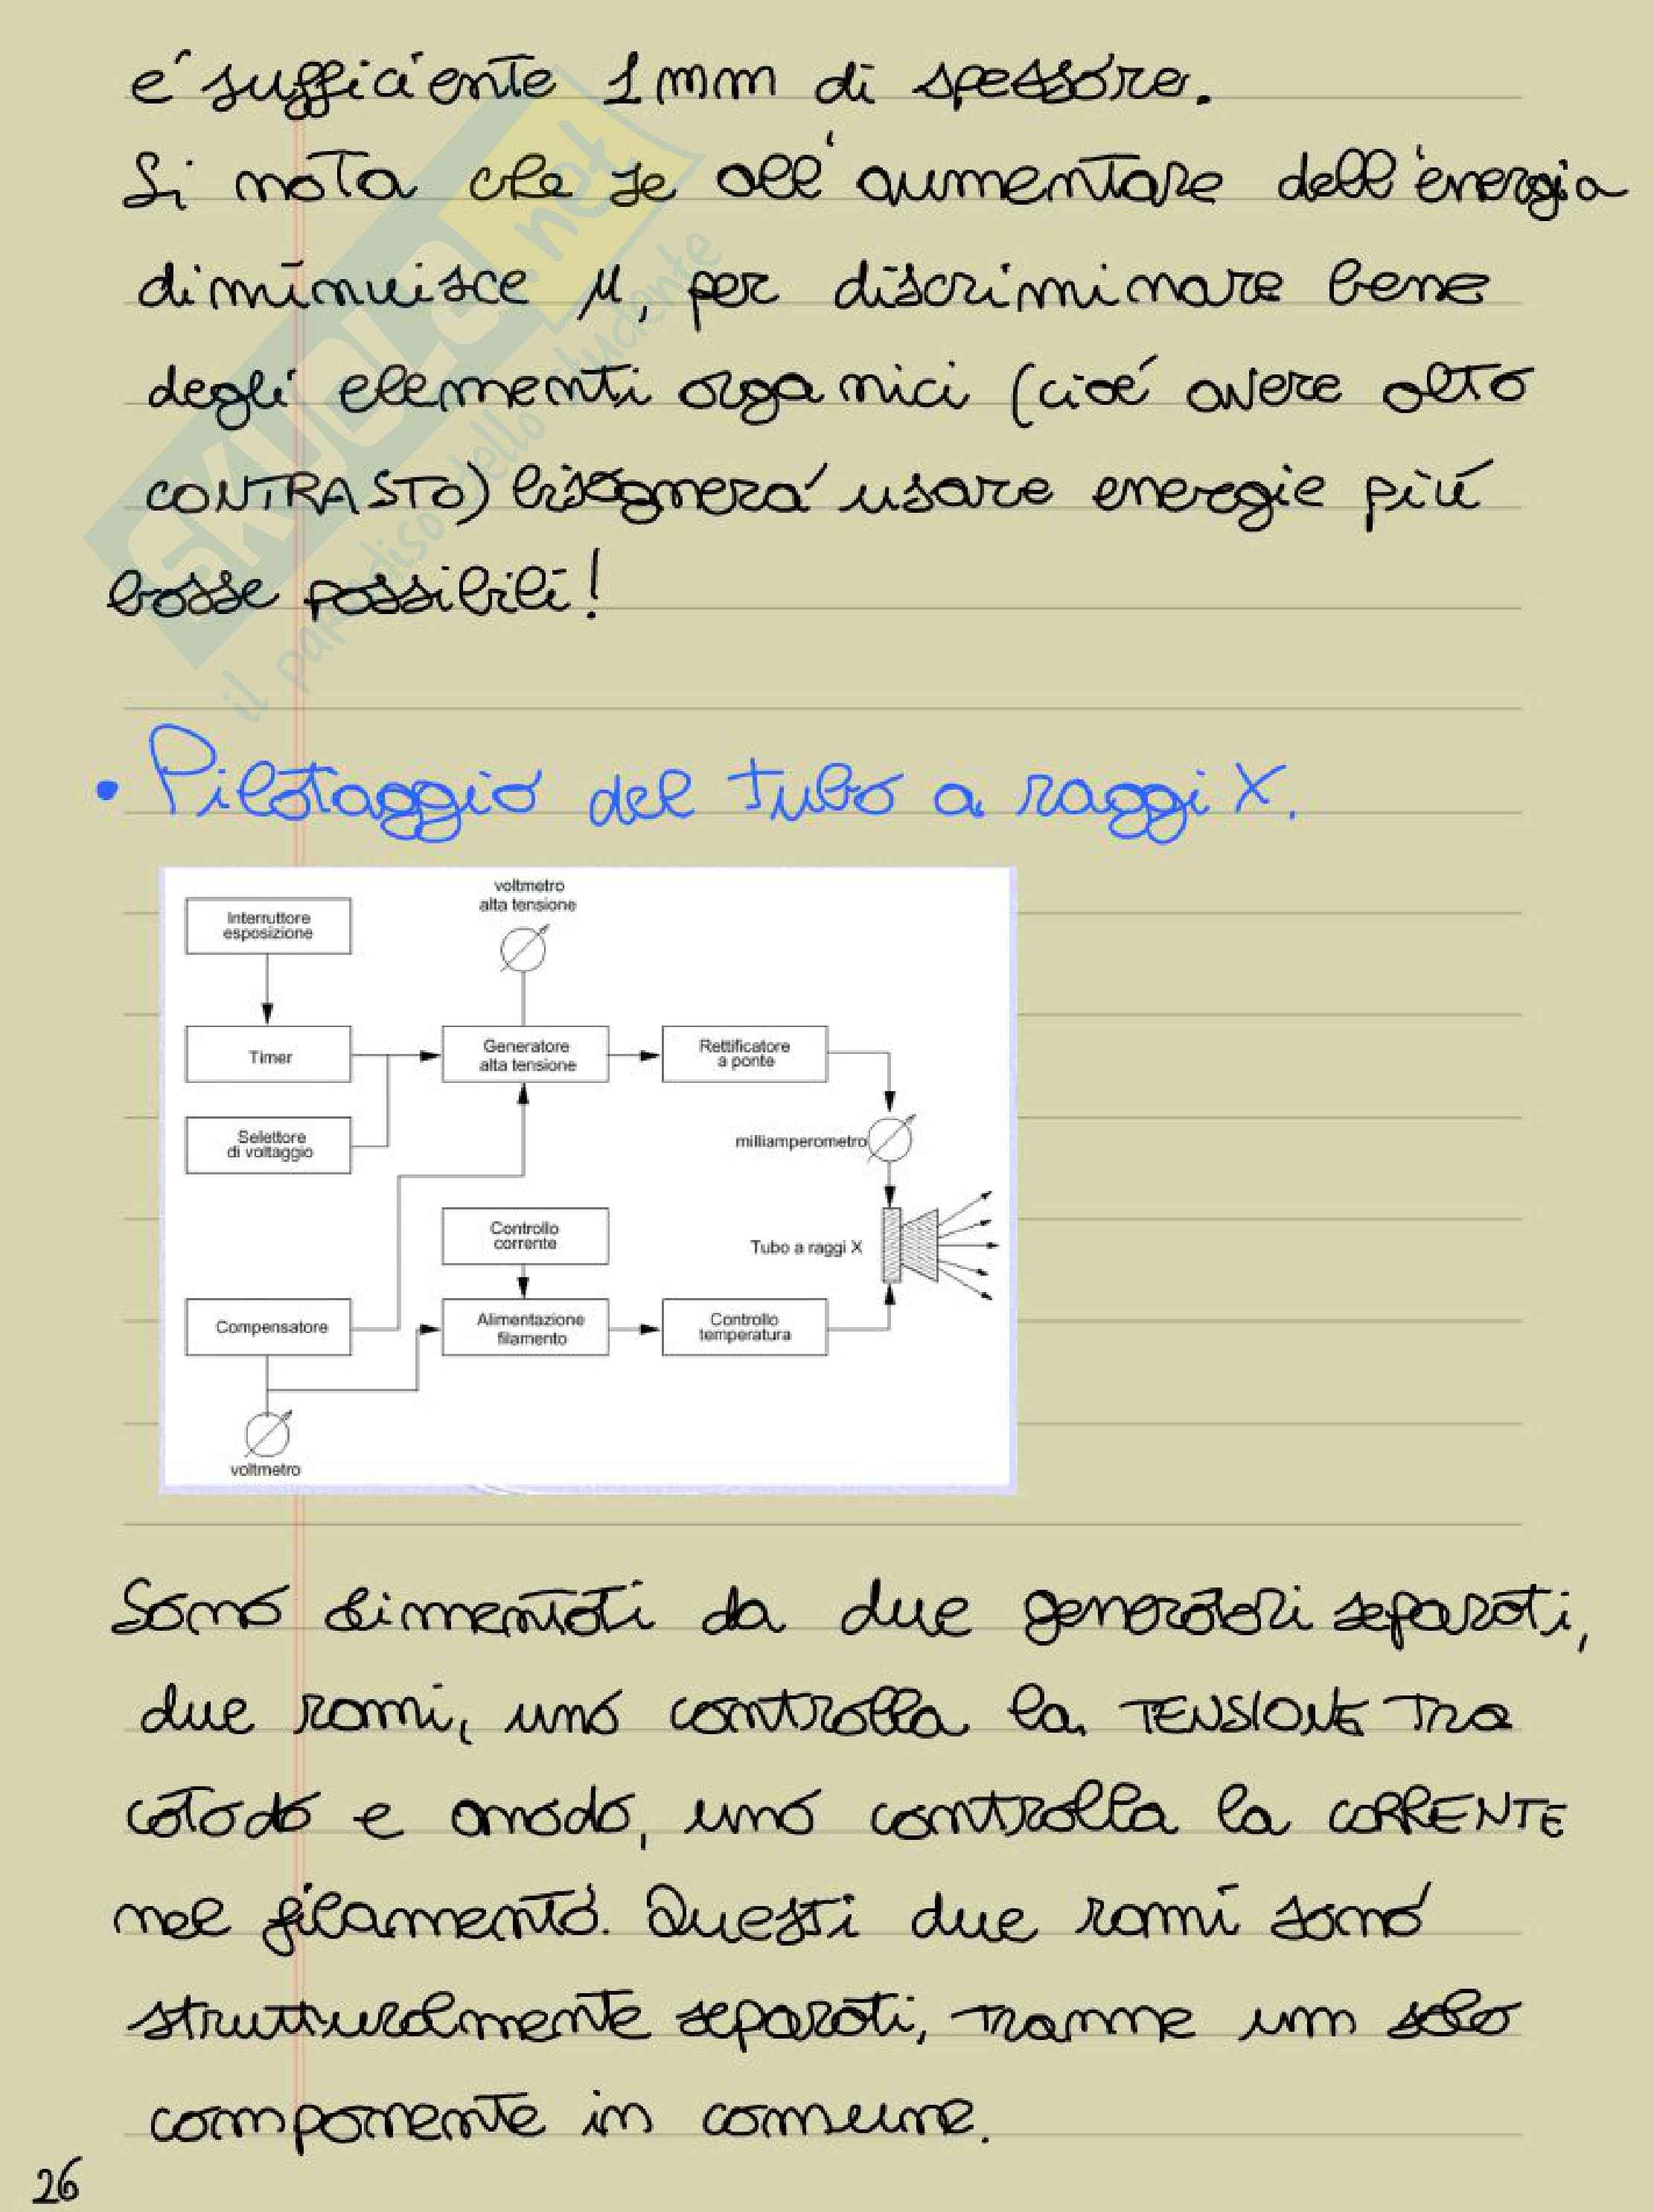 é sufficiente 1 mm di spessore.
Si nota che se all'aumentare dell'energia
diminuisce μ, per discriminare bene
degli elementi organici (cioé avere alto
CONTRASTO) bisognerá usare energie piú
basse possibili!
SKUOLA.net
il paradiso dello studente
• Pilotaggio del tubo a raggi X.
voltmetro
alta tensione
Interruttore
esposizione
Timer
Generatore
alta tensione
Rettificatore
a ponte
Selettore
di voltaggio
milliamperometro
Controllo
corrente
Tubo a raggi X
Compensatore
Alimentazione
filamento
Controllo
temperatura
voltmetro
Sono alimentati da due generatori separati,
due rami, uno controlla la TENSIONE Tra
catodo e anodo, uno controlla la CORRENTE
nel filamento. Questi due rami sono
strutturalmente separati, tranne un solo
componente in comune.
26